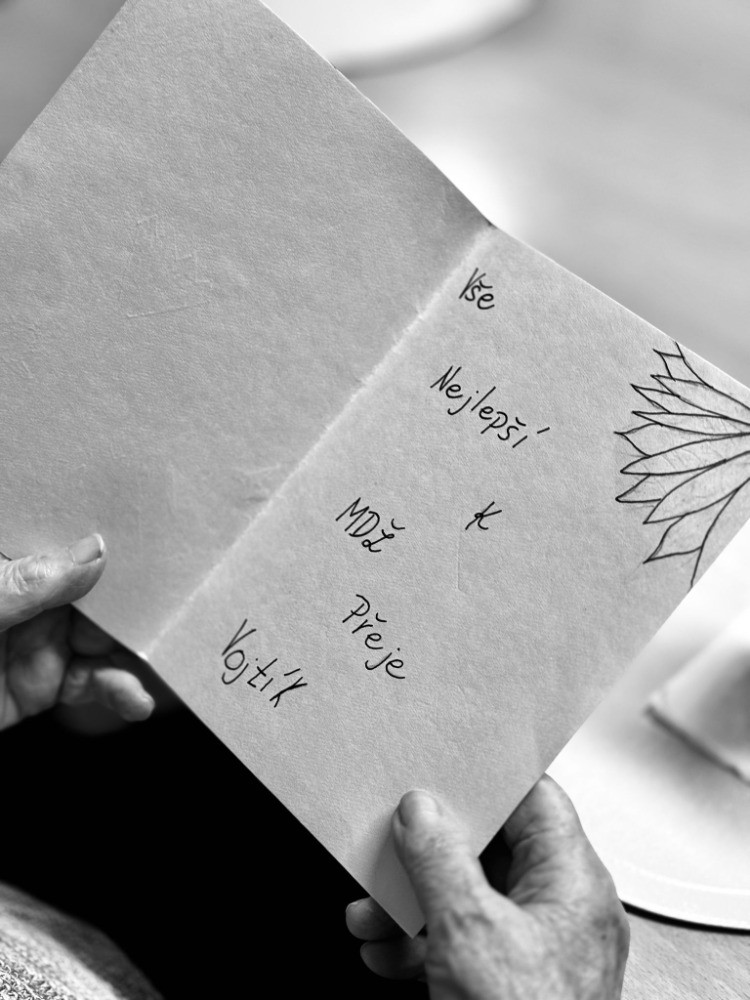 Vše
Nejlepší
K
MDŽ
Přeje
Vojtík